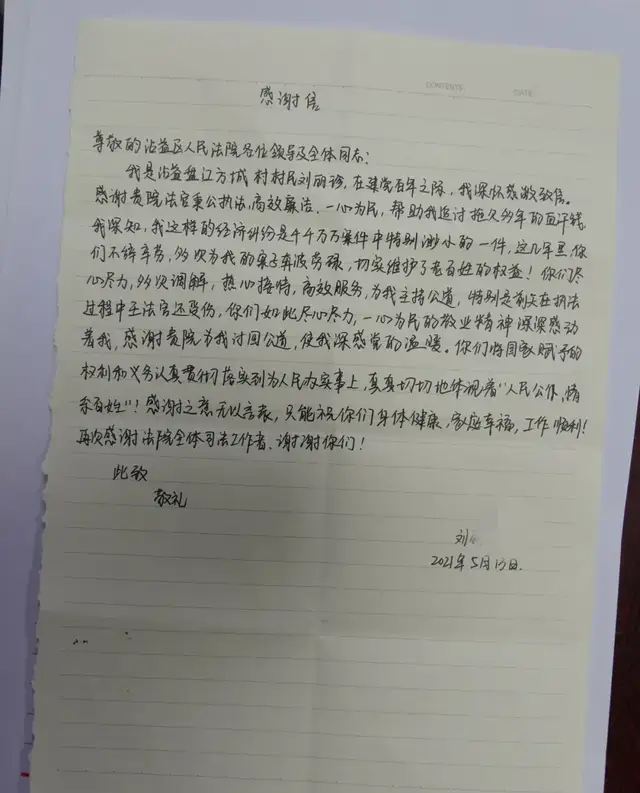 CONTENTS
DATE
感谢信
尊敬的沾益区人民法院各位领导及全体同志:
我是沾益盘江方城村村民刘丽珍,在建党百年之际,我深怀感激致信。
感谢贵院法官秉公执法,高效廉洁,一心为民,帮助我追讨拖欠多年的血汗钱
我深知,我这样的经济纠纷是千千万万案件中特别渺小的一件,这几年里,你
们不辞辛劳,多次为我的案子奔波劳碌,切实维护了老百姓的权益!你们尽
心尽力,多次调解,热心接待,高效服务,为我主持公道,特别是前天在执法
过程中王法官还受伤,你们如此尽心尽力,一心为民的敬业精神深深感动
着我,感谢贵院为我讨回公道,使我深感党的温暖。你们将国家赋予的
权利和义务认真贯彻落实到为人民办实事上,真真切切地体现着"人民公仆,情
系百姓"!感谢之意无以言表,只能祝你们身体健康,家庭幸福,工作顺利!
再次感谢法院全体司法工作者,谢谢你们!
此致
敬礼
刘
2021年5月13日.